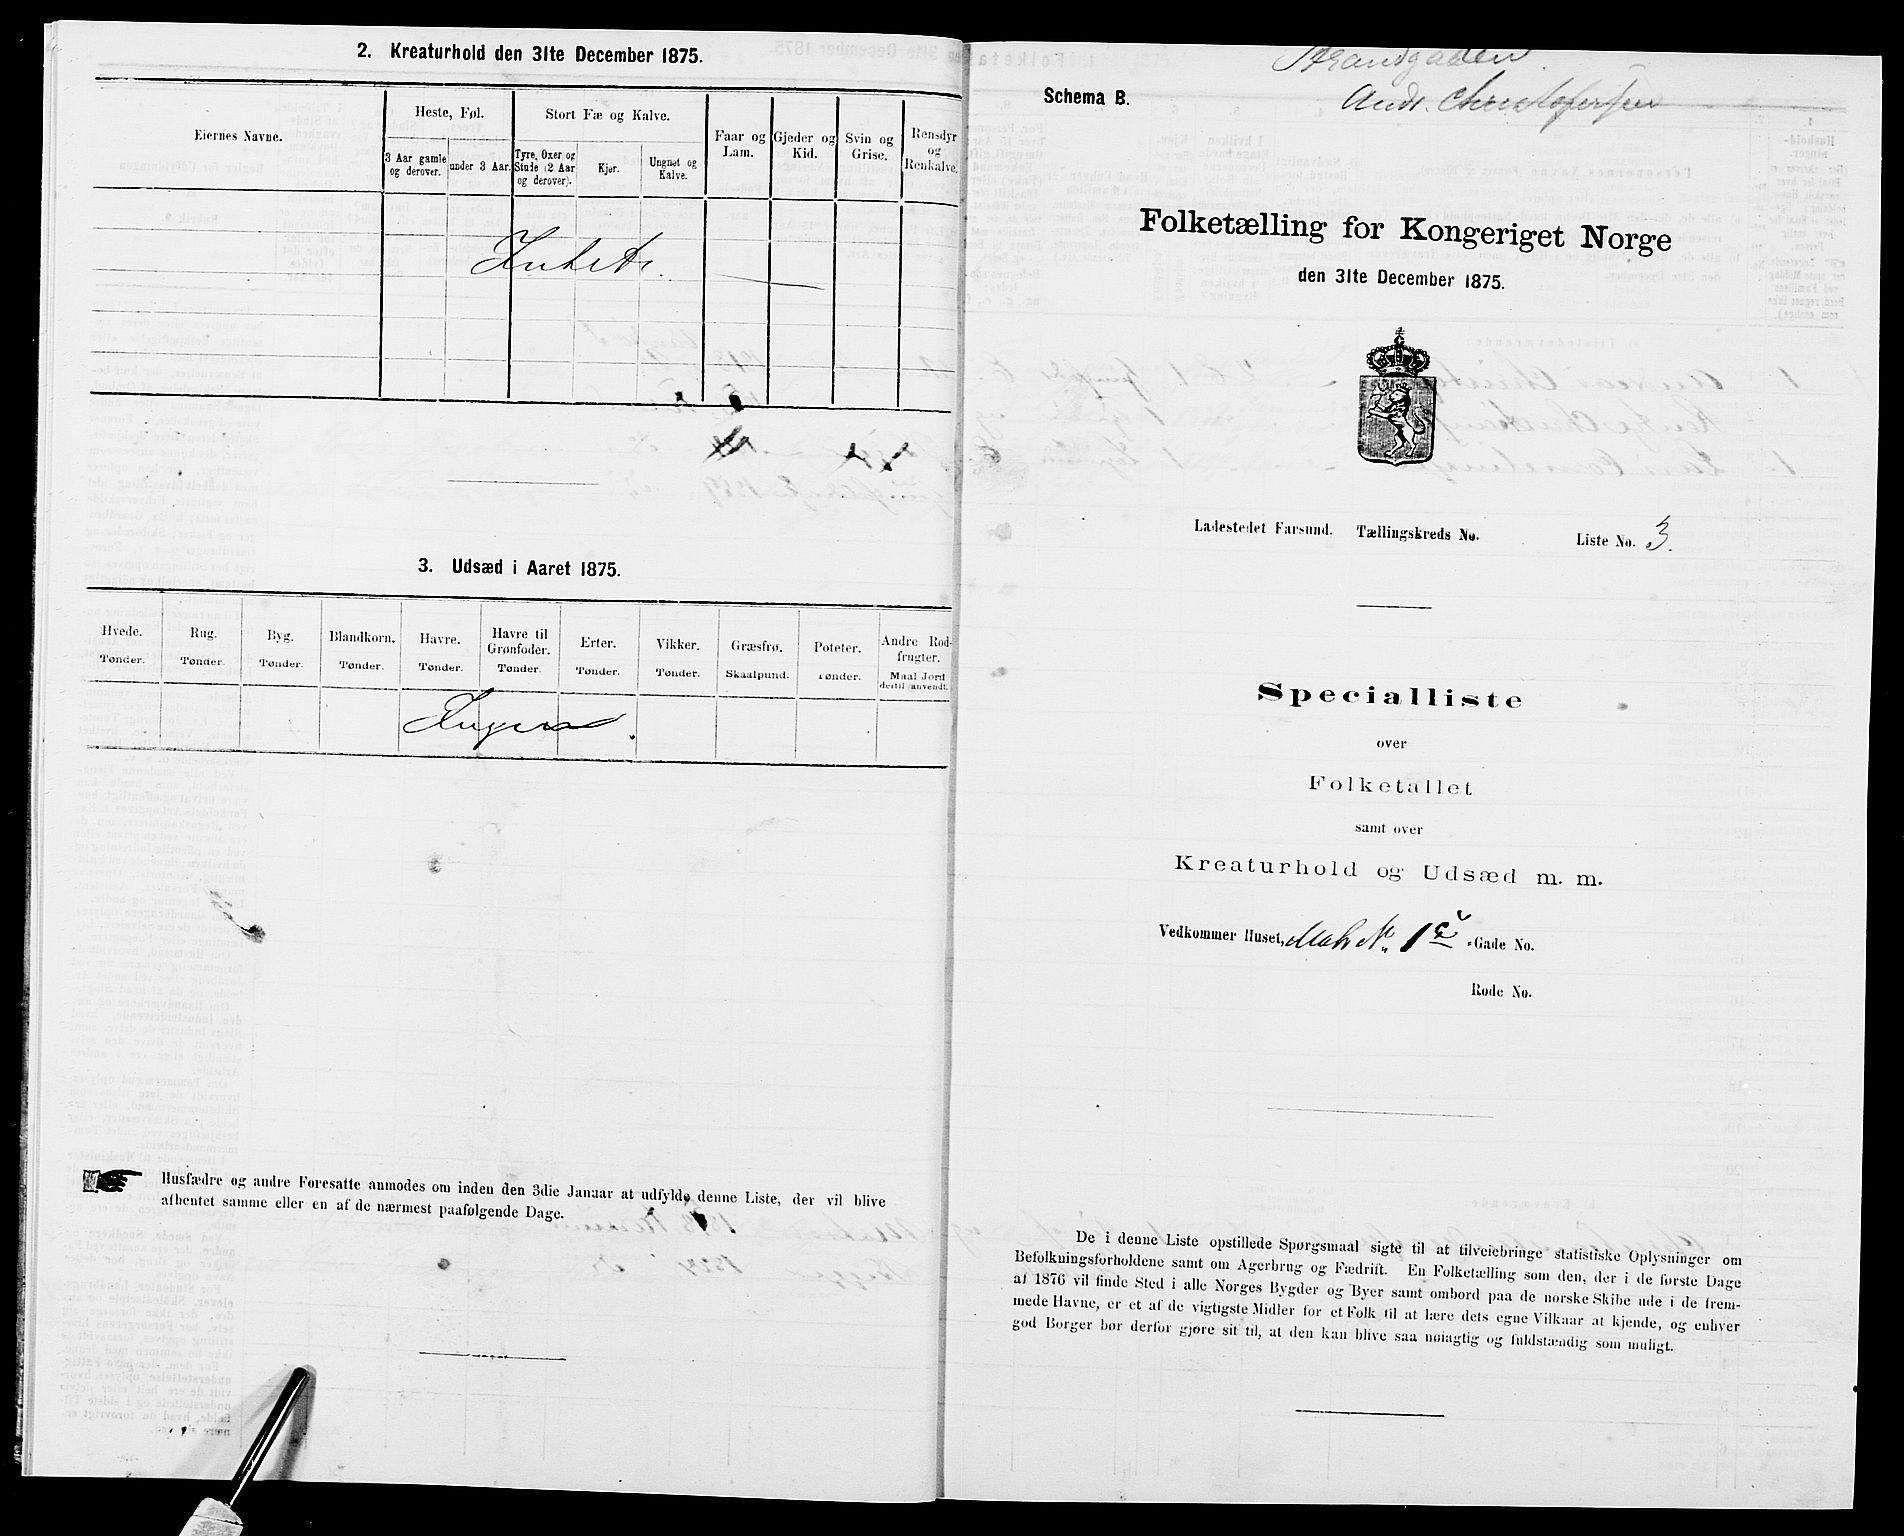 2. Kreaturhold den 31te December 1875.
Eiernes Navne.
Heste, Føl.
Stort Fæ og Kalve.
Faar og Lam.
Gjeder og Kid.
Svin og Grise.
Rensdyr og Renkalve.
3 Aar gamle og derover.
under 3 Aar.
Tyre, Oxer og Stude (2 Aar og derover).
Kjør.
Ungnøt og Kalve.
Intet.
3. Udsæd i Aaret 1875.
Hvede. Rug. Byg. Blandkorn. Havre. Havre til Grønfoder. Erter. Vikker. Græsfrø. Poteter. Andre Rodfrugter.
Tønder. Tønder. Tønder. Tønder. Tønder. Tønder. Tønder. Tønder. Skaalpund. Tønder. Maal Jord dertil anvendt.
Ingen
Husfædre og andre Foresatte anmodes om inden den 3die Januar at udfylde denne Liste, der vil blive
afhentet samme eller en af de nærmest paafølgende Dage.
Strandgaden
Andr. Christofersen
Schema B.
Folketælling for Kongeriget Norge
den 31te December 1875.
Ladestedet Farsund. Tællingskreds No. Liste No. 3.
Specialliste
over
Folketallet
samt over
Kreaturhold og Udsæd m. m.
Vedkommer Huset, Matr. No. 1c -Gade No.
Rode No.
De i denne Liste opstillede Spørgsmaal sigte til at tilveiebringe statistiske Oplysninger om
Befolkningsforholdene samt om Agerbrug og Fædrift. En Folketælling som den, der i de første Dage
af 1876 vil finde Sted i alle Norges Bygder og Byer samt ombord paa de norske Skibe ude i de frem-
mede Havne, er et af de vigtigste Midler for et Folk til at lære dets egne Vilkaar at kjende, og enhver
god Borger bør derfor gjøre sit til, at den kan blive saa nøiagtig og fuldstændig som muligt.